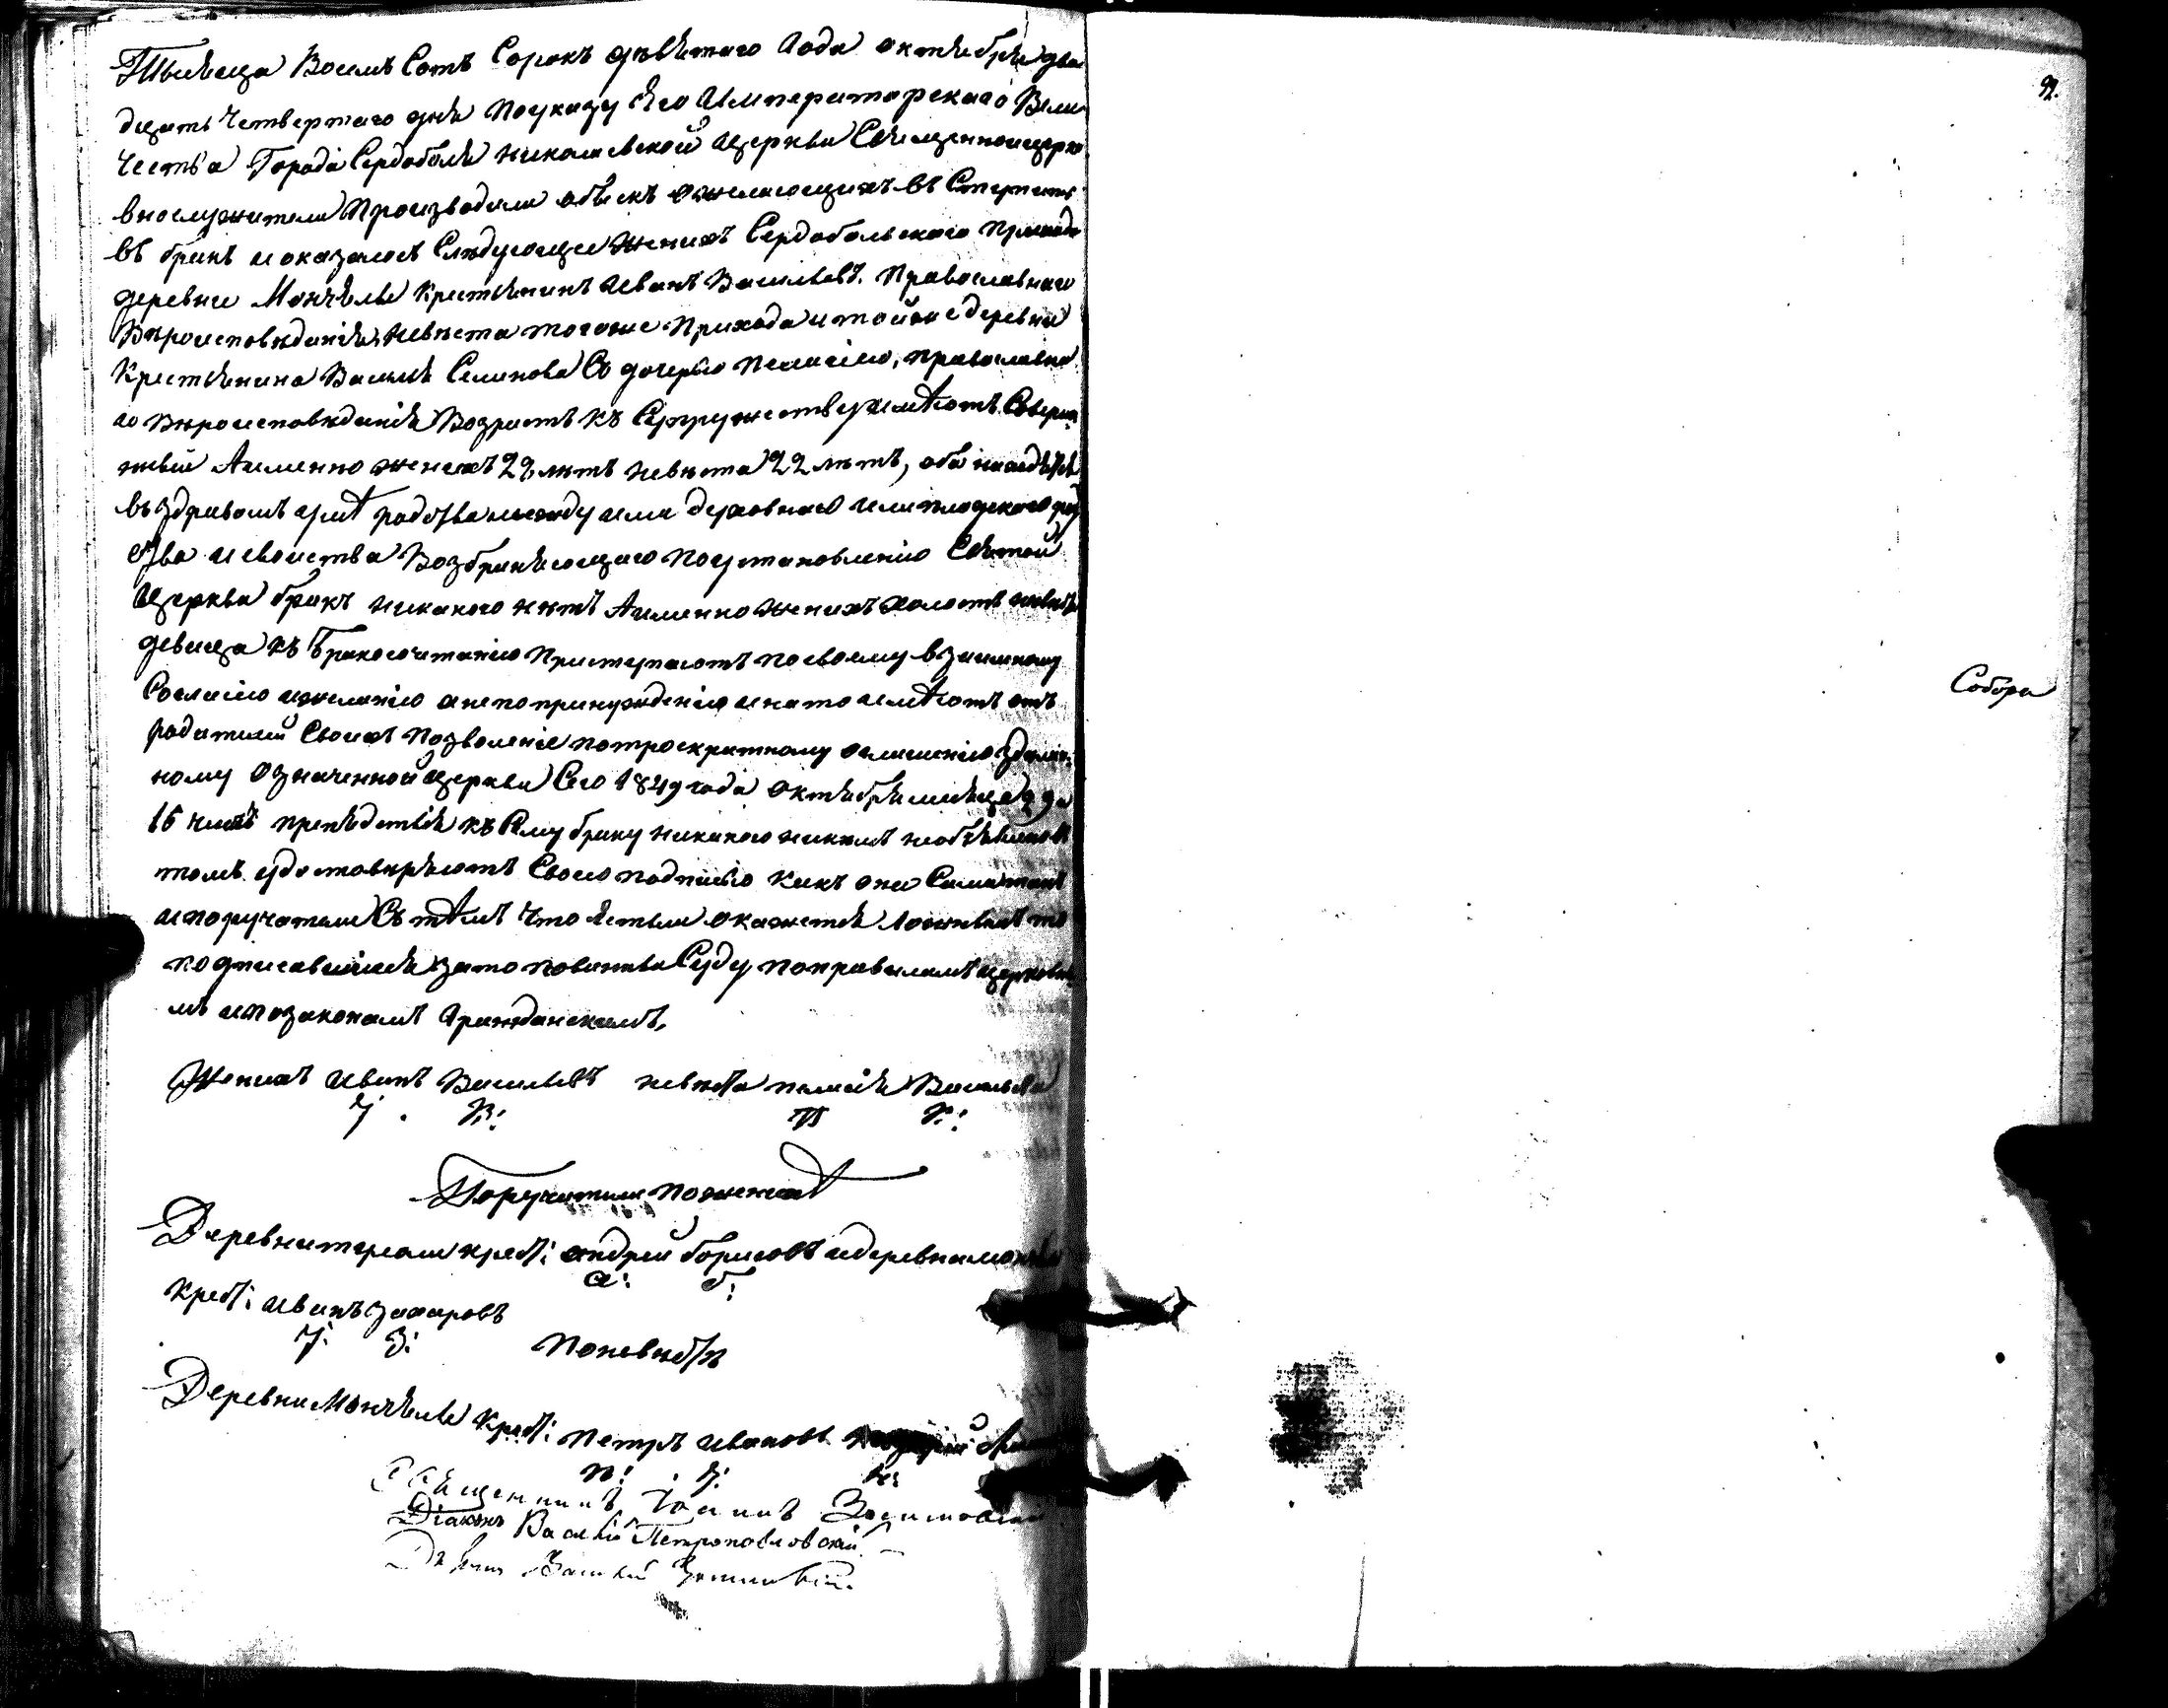 Тысяща Восемь Сотъ Сорокъ девятаго Года октября два
дцать Четвертаго дня По указу Его Императорскаго Вели
чества Города Сердоболя николаевской Церкви Священно и церко
вно служители Производили обыскъ о желающихъ вступить
въ бракъ и оказалось Следующее женихъ Сердобольскаго Прихода
деревни Мончѣлы Крестьянинъ Иванъ Васильевъ. Православнаго
Вѣроисповѣданія, невѣста того же Прихода и той же деревни
Крестьянина Василья Семенова Съ дочерью Пелагіею, православна
го Вѣроисповѣданія Возрастъ къ Супружеству имѣютъ Соверше
нный А именно женихъ 23 лѣтъ невѣста 22 лѣтъ, оба находятся
въ здравомъ умѣ родства между ими духовнаго или плотскаго род
ства и свойства Возбраняющаго по установленію Святой
Церкви бракъ никакого нѣтъ А именно женихъ холостъ невѣста
девица къ Бракосочитанію Приступаютъ по своему взаимному
Согласію и желанію а не по принужденію и на то имѣютъ отъ
родителей Своихъ Позволеніе по троекратному оглашенію зделан
ному означенной Церкви Сего 1849 года октября месяца 2 9 и
16 чиселъ препятствія къ Сему браку никакого никемъ не объявлено в
томъ удостовѣряютъ Своею подписью какъ они Сами такъ
и поручатели Съ тѣмъ что естьли окажется ложнымъ то
подписавшійся за то повинны Суду по правиламъ церковны
мъ и по законамъ Гражданскимъ,
Женихъ Иванъ Васильевъ невѣста пелагія Васильева
Поручители по женихѣ
Деревни крест: андрей борисовъ и деревни мончѣлы
крест: иванъ захаровъ
а: б:
По невѣстѣ
Деревни Мончѣлы крест: петръ ивановъ
Священникъ Іоаннъ
Діаконъ Василій Петропавловскій
Василій
Собора